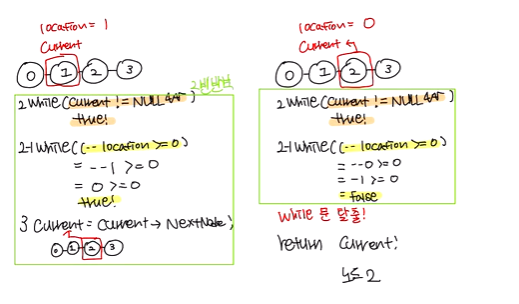 location = 1
Current
0 1 2 3
2번방법
2 While(Current != NULL &&)
true!
2-1 While((-- location >= 0)
= --1 >= 0
= 0 >= 0
true!
3 Current = Current → NextNode;
0 1 2 3
location = 0
Current
0 1 2 3
2 While(Current != NULL &&)
true!
2-1 While((-- location >= 0)
= --0 >= 0
= -1 >= 0
= False
While 문 탈출!
return Current;
2